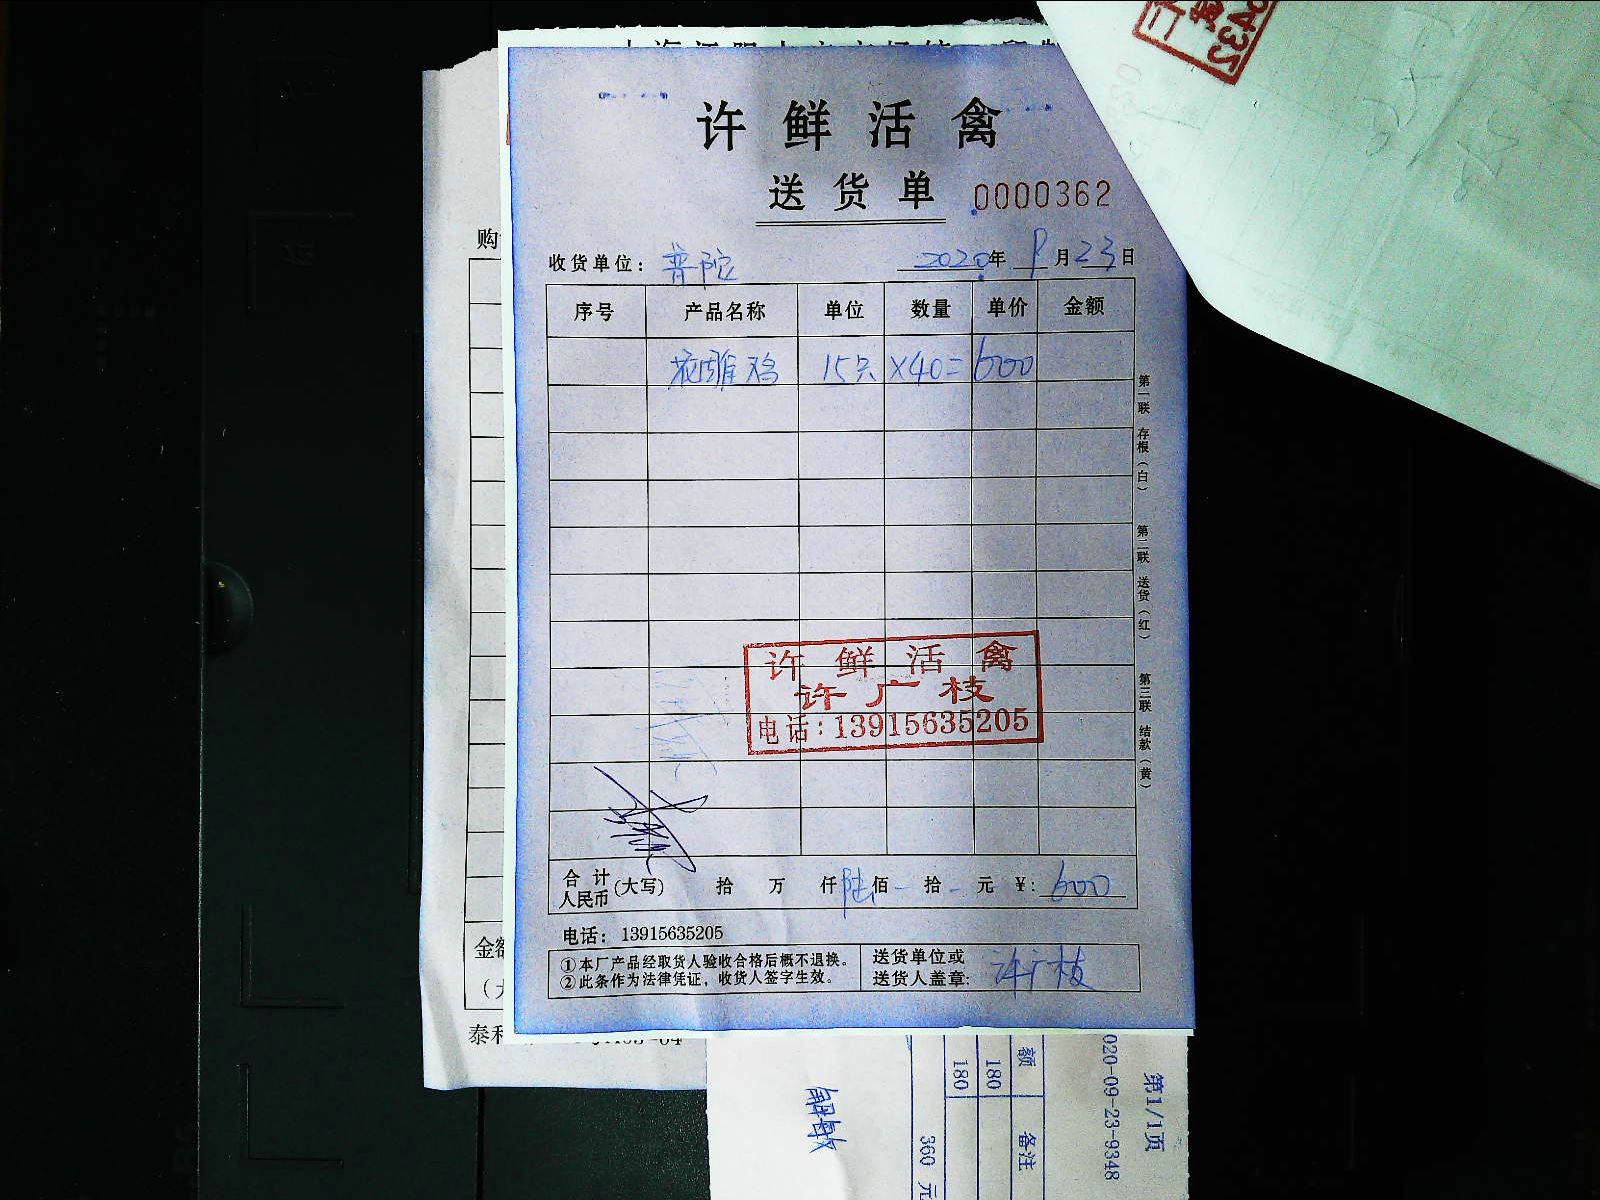 许鲜活禽
送货单 0000362
收货单位：普陀 2020年9月23日
序号 产品名称 单位 数量 单价 金额
花雕鸡 15只 ×40= 600
第一联 存根（白） 第二联 送货（红） 第三联 结款（黄）
许鲜活禽
许广枝
电话：13915635205
合计人民币（大写） 拾 万 仟 陆佰 - 拾 - 元 ¥：600
电话：13915635205
①本厂产品经取货人验收合格后概不退换。
②此条作为法律凭证，收货人签字生效。
送货单位或
送货人盖章：许广枝
购
金额
泰和
额 180 180
备注
360 元
020-09-23-9348
第1/1页